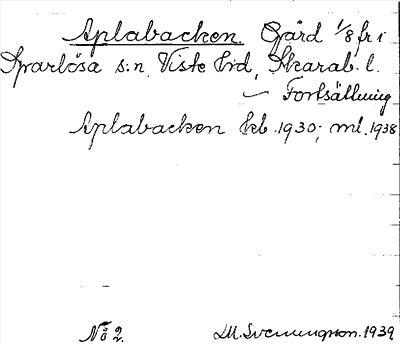 Aplabacken. Gård 1/8 fr i
Sparlösa s:n, Viste hrd, Skarab. l.
— Fortsättning
Aplabacken kb. 1930; ml. 1938
No 2
D.M. Svenningson. 1939